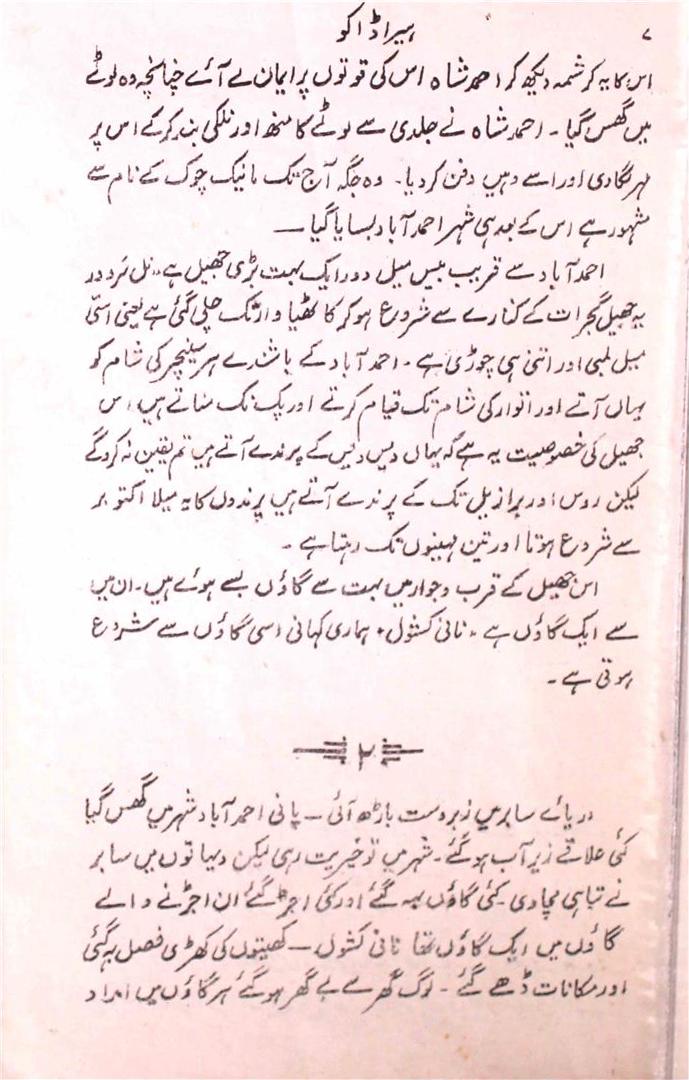 ۷
ہیرا ڈاکو
اس کا یہ کرشمہ دیکھ کر احمد شاہ اس کی قوتوں پر ایمان لے آئے چنانچہ وہ لوٹے
میں گھس گیا ۔ احمد شاہ نے جلدی سے لوٹے کا منھ اور نلکی بند کرکے اس پر
مہر لگا دی اور اسے وہیں دفن کر دیا ۔ وہ جگہ آج تک مانیک چوک کے نام سے
مشہور ہے اس کے بعد ہی شہر احمد آباد بسایا گیا ــ
احمد آباد سے قریب بیس میل دور ایک بہت بڑی جھیل ہے ،، نل سَرودر
یہ جھیل گجرات کے کنارے سے شروع ہو کر کاٹھیا واڑ تک چلی گئی ہے یعنی اسّی
میل لمبی اور اتنی ہی چوڑی ہے ۔ احمد آباد کے باشندے ہر سنیچر کی شام کو
یہاں آتے اور اتوار کی شام تک قیام کرتے اور پک نک مناتے ہیں اس
جھیل کی خصوصیت یہ ہے کہ یہاں دیس دیس کے پرندے آتے ہیں تم یقین نہ کرو گے
لیکن روس اور برازیل تک کے پرندے آتے ہیں پرندوں کا یہ میلا اکتوبر
سے شروع ہوتا اور تین مہینوں تک رہتا ہے ۔
اس جھیل کے قرب و جوار میں بہت سے گاؤں بسے ہوئے ہیں ۔ ان میں
سے ایک گاؤں ہے ،، نانی کسٹول ، ہماری کہانی اسی گاؤں سے شروع
ہوتی ہے ۔
۲
دریائے سابر میں زبردست باڑھ آئی ــ پانی احمد آباد شہر میں گھس گیا
کئی علاقے زیر آب ہو گئے ۔ شہر میں تو خیریت رہی لیکن دیہاتوں میں سابر
نے تباہی مچا دی ۔ کئی گاؤں بہہ گئے اور کئی اجڑ گئے ان اجڑنے والے
گاؤں میں ایک گاؤں تھا نانی کسٹول ــ کھیتوں کی کھڑی فصل بہہ گئی
اور مکانات ڈھے گئے ۔ لوگ گھر سے بے گھر ہو گئے ہر گاؤں میں امداد